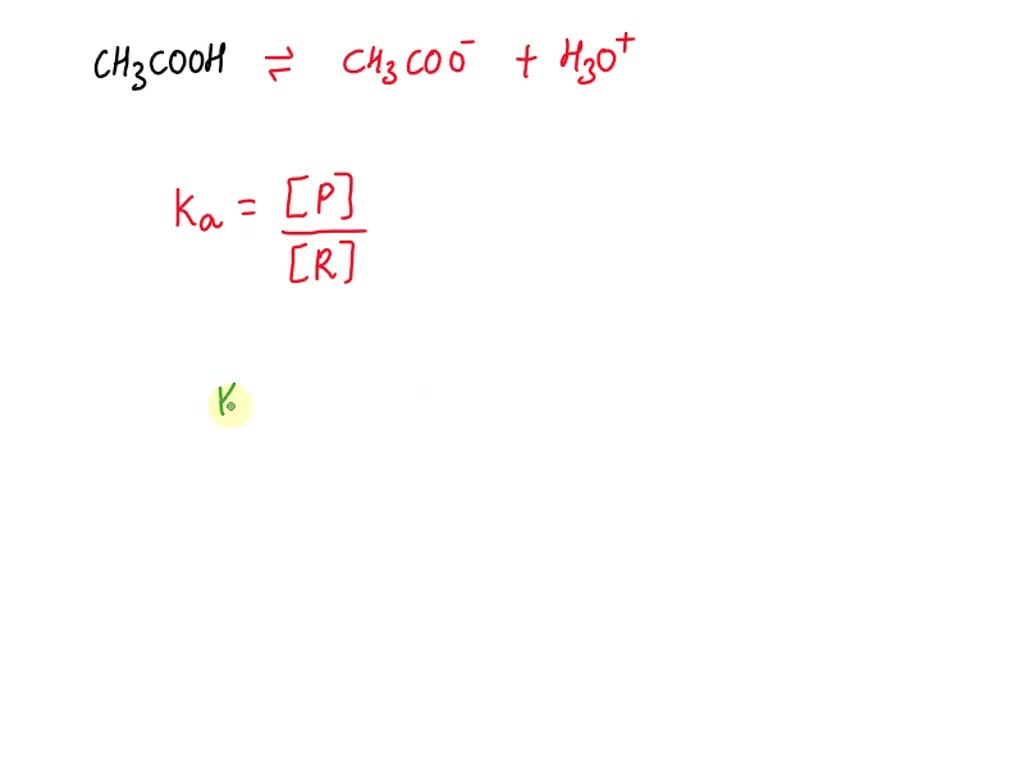 CH₃COOH ⇌ CH₃COO⁻ + H₃O⁺
Kₐ = [P]
[R]
K